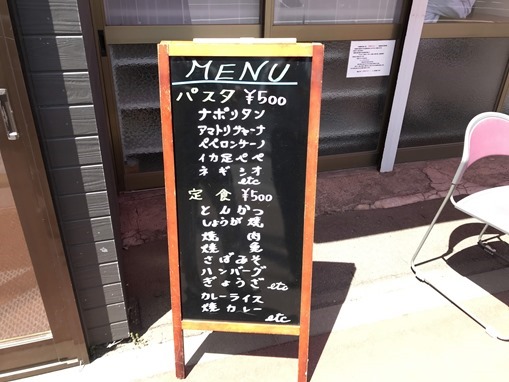 MENU
パスタ ¥500
ナポリタン
アマトリチャーナ
ペペロンチーノ
イカ定ペペ
ネギシオ
etc
定食 ¥500
とんかつ
しょうが焼
焼肉
焼魚
さばみそ
ハンバーグ
ぎょうざ etc
カレーライス
焼カレー
etc